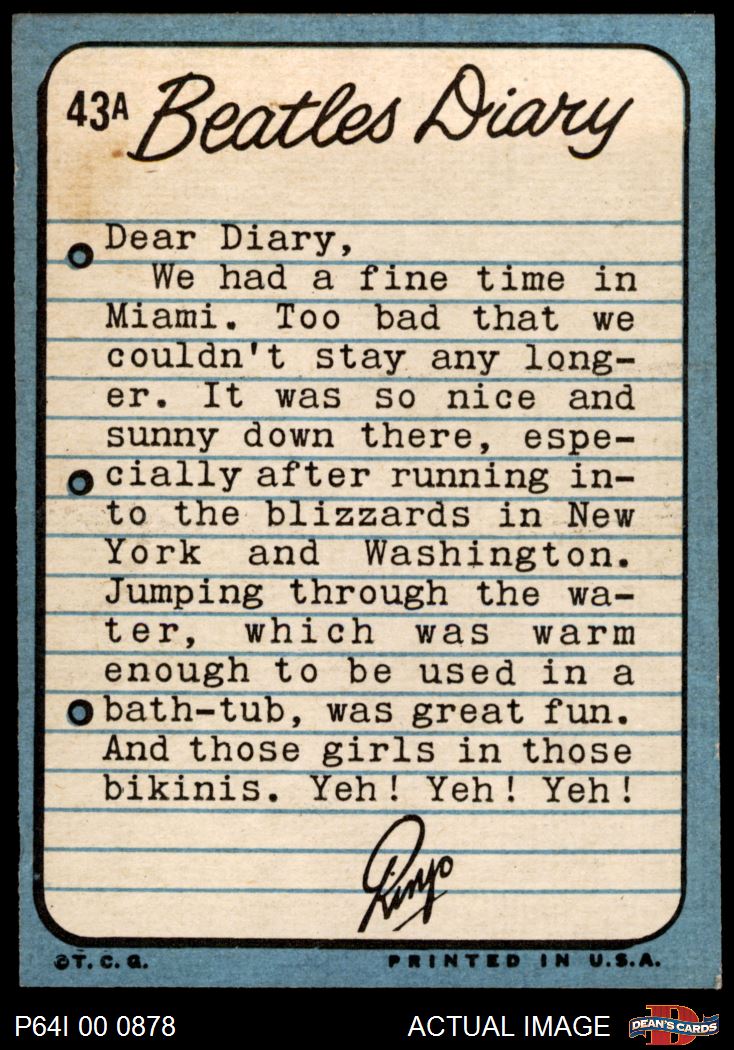 43A Beatles Diary
Dear Diary,
We had a fine time in
Miami. Too bad that we
couldn't stay any long-
er. It was so nice and
sunny down there, espe-
cially after running in-
to the blizzards in New
York and Washington.
Jumping through the wa-
ter, which was warm
enough to be used in a
bath-tub, was great fun.
And those girls in those
bikinis. Yeh! Yeh! Yeh!
Ringo
©T.C.G. PRINTED IN U.S.A.
P64I 00 0878 ACTUAL IMAGE DEAN'S CARDS